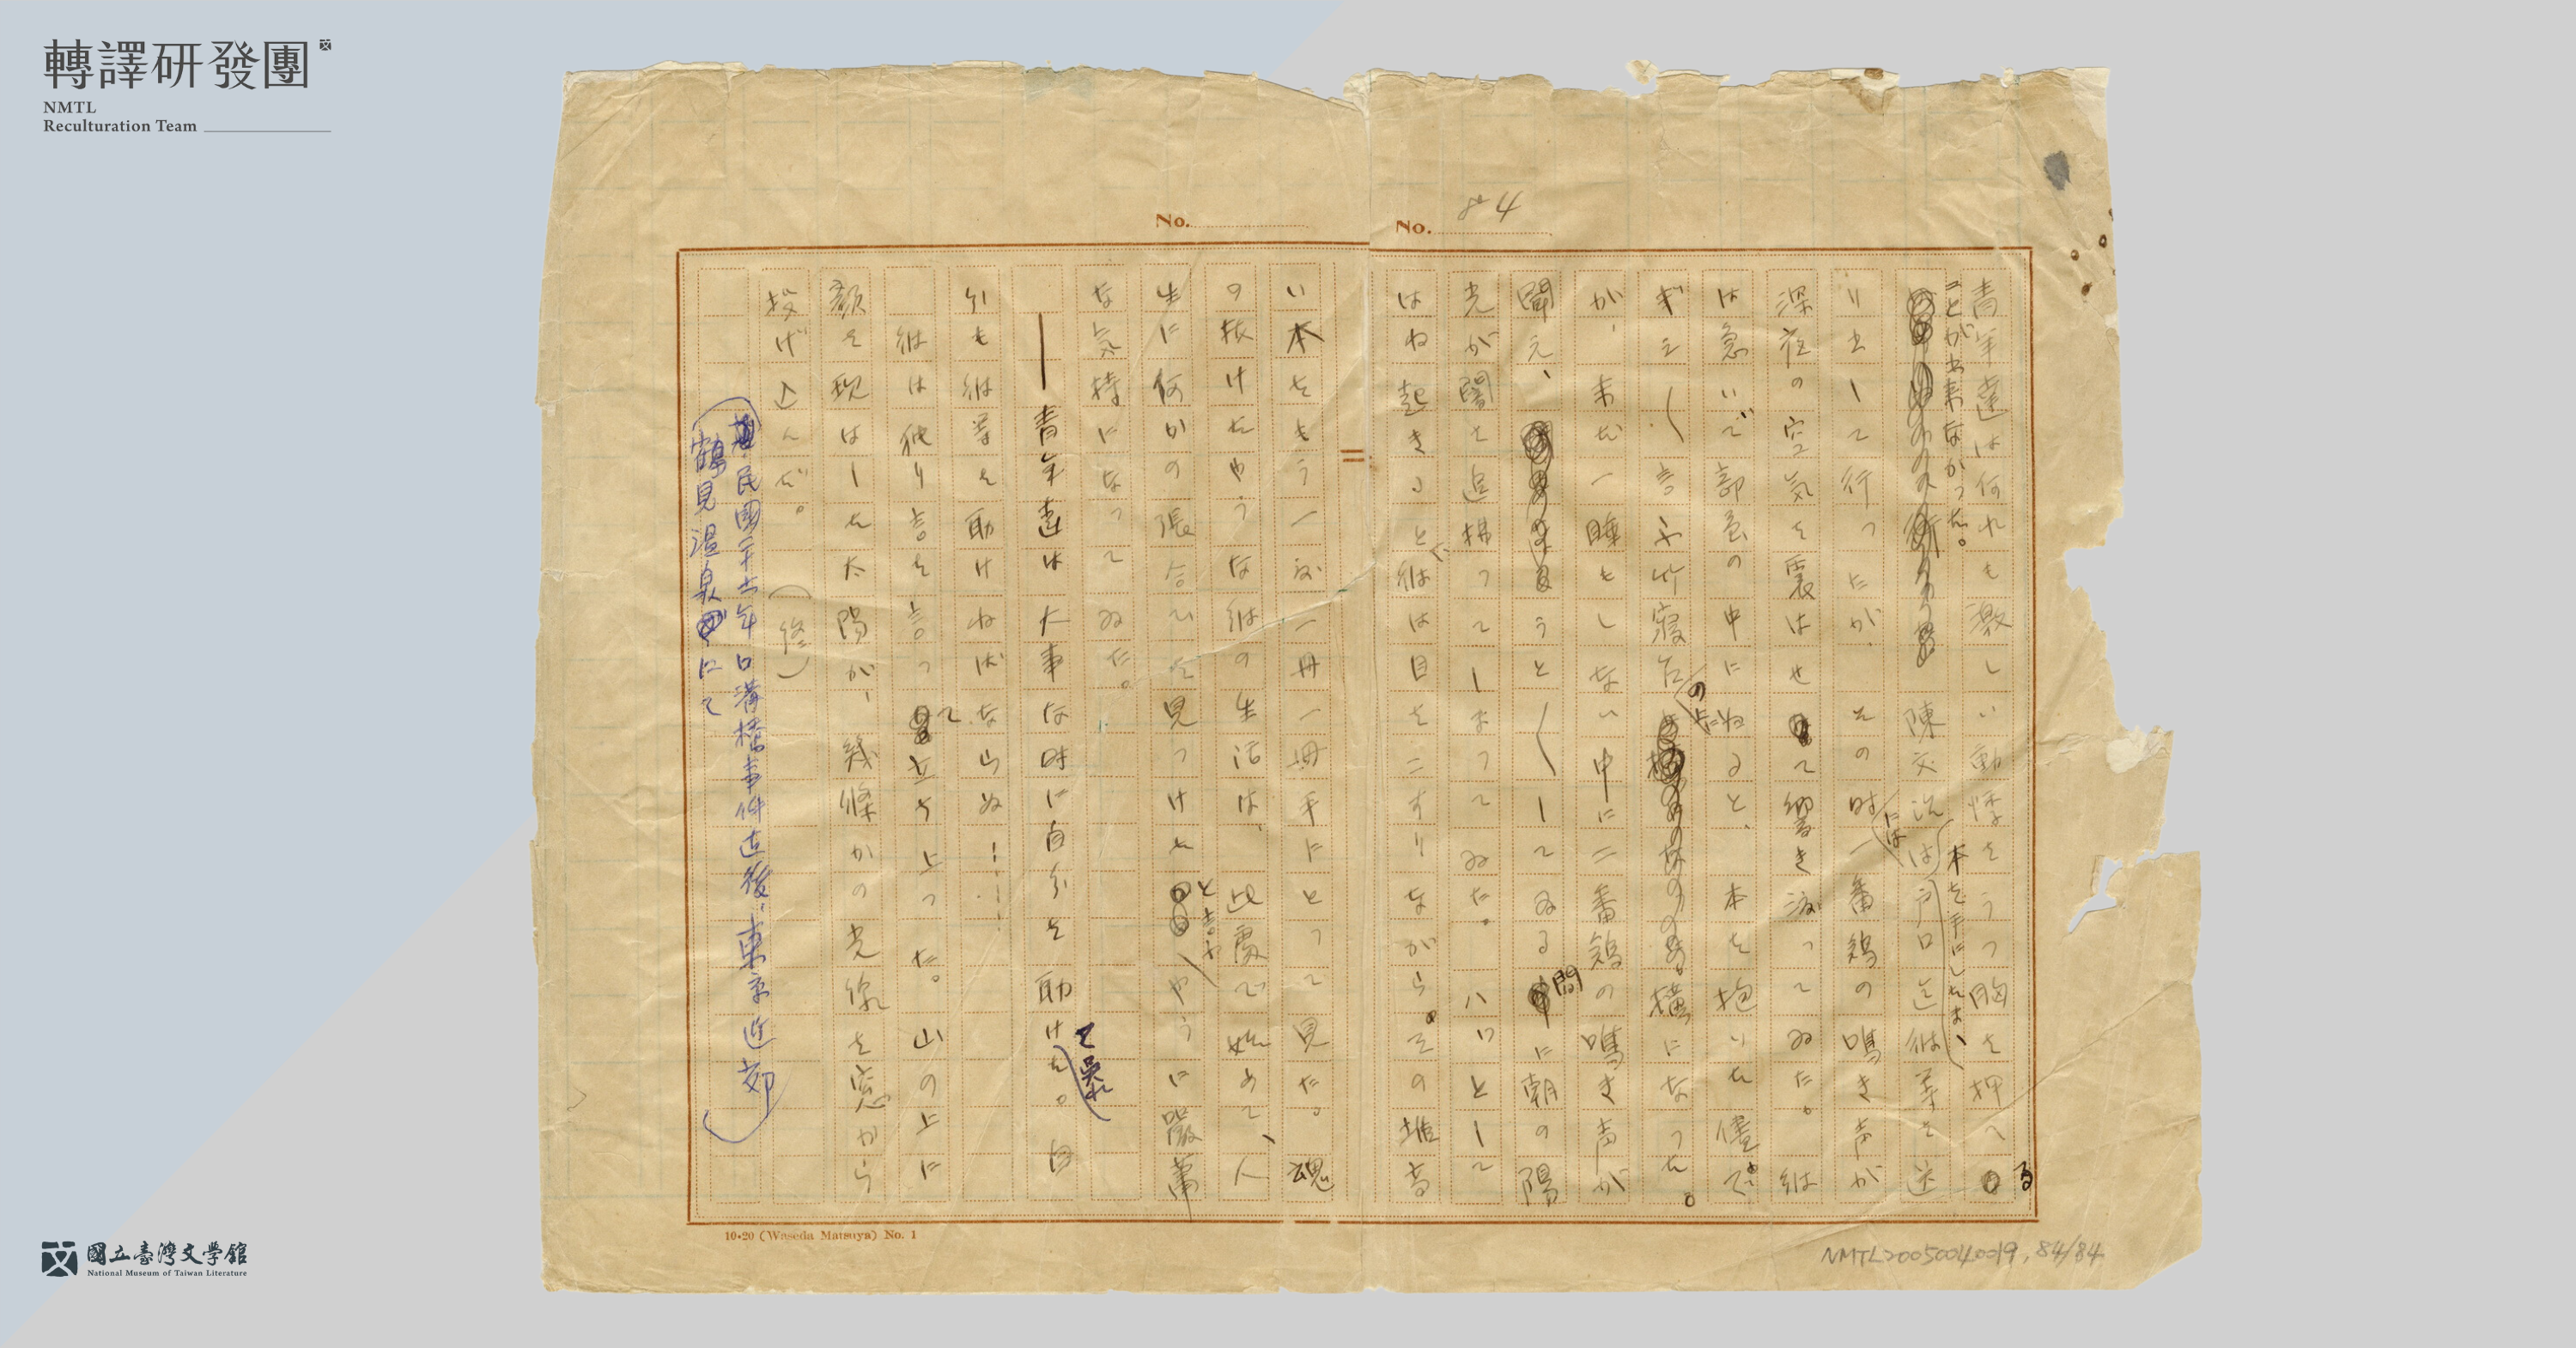 轉譯研發團
NMTL
Reculturation Team
No. 84
No.
青年達は何れも激しい動悸をうつ胸を押へる
ことが出来なかった。
陳文治は戸口迄彼等を送
本を手にしたまゝ
り出して行ったが、その時には一番鶏の鳴き声が
深夜の空気を震はせて響き渡ってゐた。彼
は急いで部屋の中にはねると、本を抱いた儘で、
ぎし〱言ふ竹寝台の上に横になった。
が、未だ一睡もしない中に二番鶏の鳴き声が
聞え、うと〱してゐる間に朝の陽
光が闇を追拂ってしまってゐた。ハッとして
はね起きると彼は目をこすりながら。その堆高
い本をもう一度一冊一冊手にとって見た。魂
の抜けたやうな彼の生活は、此處で始めて、人
生に何かの張合ひを見つけたと言ふやうに嚴肅
な気持になってゐた。
──青年達は大事な時に自分を助けて呉れた。自
分も彼等を助けねばならぬ……
彼は独り言を言って立ち上った。山の上に
顔を現はした太陽が、幾條かの光線を窓から
投げ込んだ。（終）
（民國二十六年口溝橋事件直後、東京近郊
鶴見温泉にて）
10•20 (Waseda Matsuya) No. 1
NMTL20050040019, 84/84
國立臺灣文學館
National Museum of Taiwan Literature